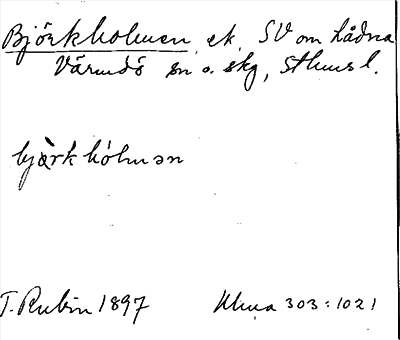 Björkholmen, ek, SV om Lådna
Värmdö sn o. skg, Sthms l.
bjärkhólmən
T. Rubin 1897 Ulma 303:1021